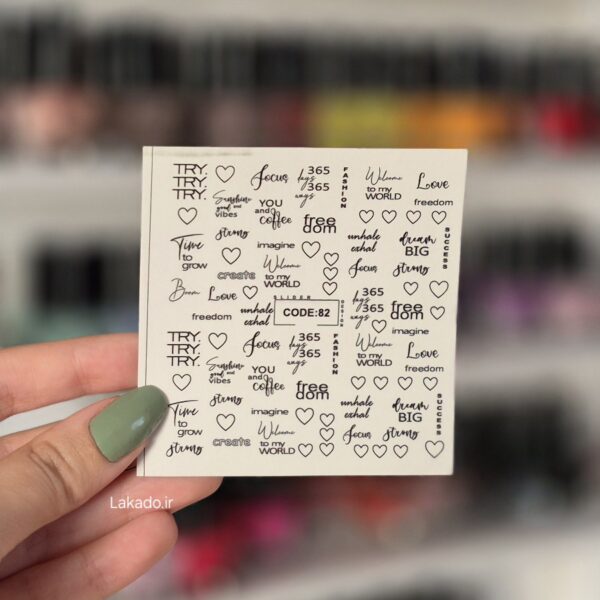 TRY.
TRY.
TRY.
focus
365
days
365
ways
FASHION
Welcome
to my
WORLD
Love
freedom
Sunshine
good and
vibes
YOU
and
coffee
free
dom
strong
imagine
unhale
exhal
dream
BIG
SUCCESS
Time
to
grow
create
Welcome
to my
WORLD
focus
strong
Boom
Love
freedom
unhale
exhal
SLIDER
CODE:82
DESIGN
365
days
365
ways
free
dom
imagine
TRY.
TRY.
TRY.
focus
365
days
365
ways
FASHION
Welcome
to my
WORLD
Love
freedom
Sunshine
good and
vibes
YOU
and
coffee
free
dom
strong
imagine
unhale
exhal
dream
BIG
SUCCESS
Time
to
grow
create
Welcome
to my
WORLD
focus
strong
strong
Lakado.ir